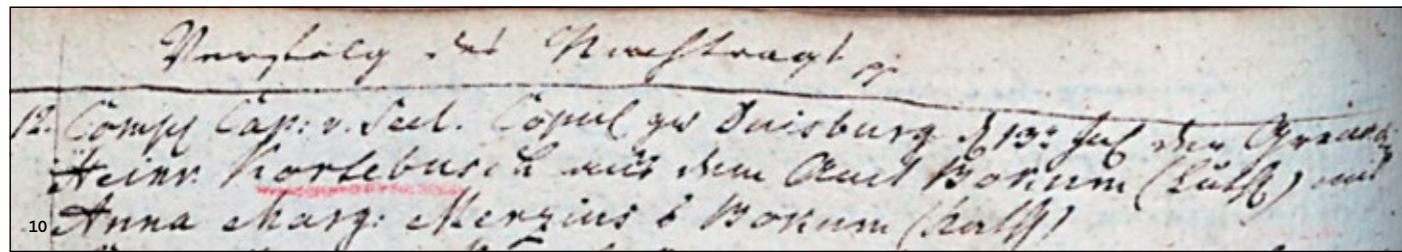 Verfolg des Nachtrags
12. Comp: Cap: v. Seel. Copul zu Duisburg d 13: Jul der Grenad.
Heinr. Kortebusch aus dem Amt Bokum (Luth) mit
10 Anna Marg: Merzius Bokum (Kath)